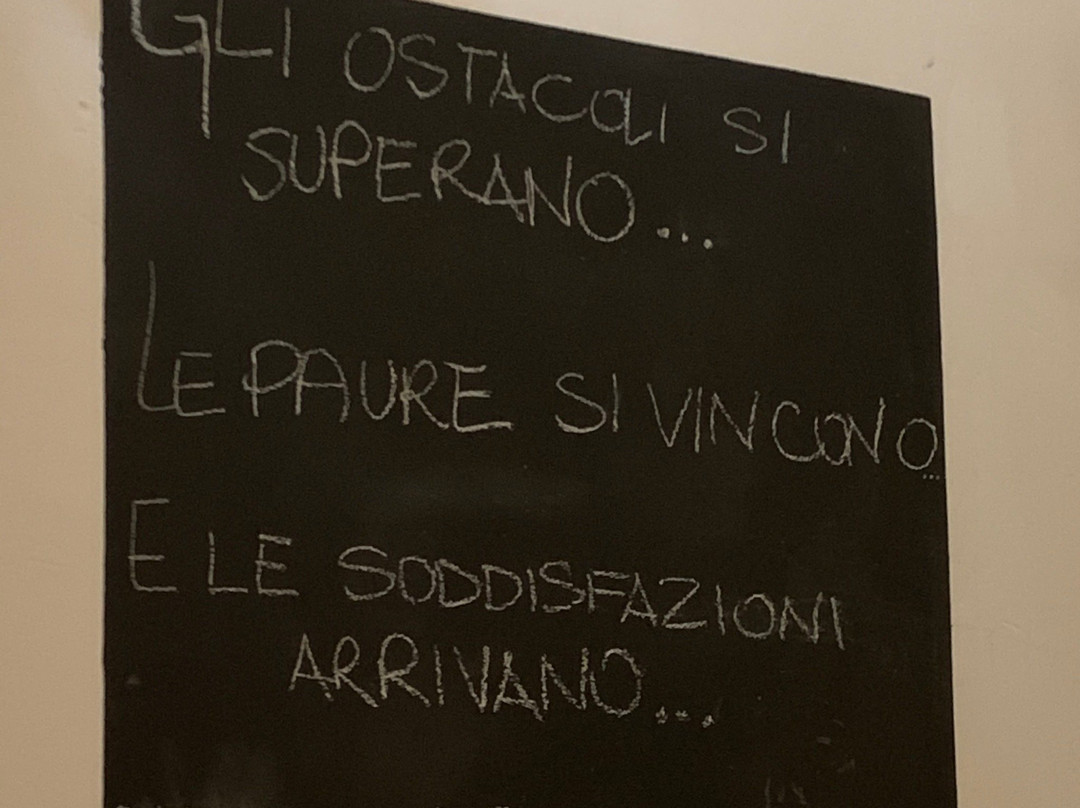 GLI OSTACOLI SI
SUPERANO...
LE PAURE SI VINCONO...
E LE SODDISFAZIONI
ARRIVANO...